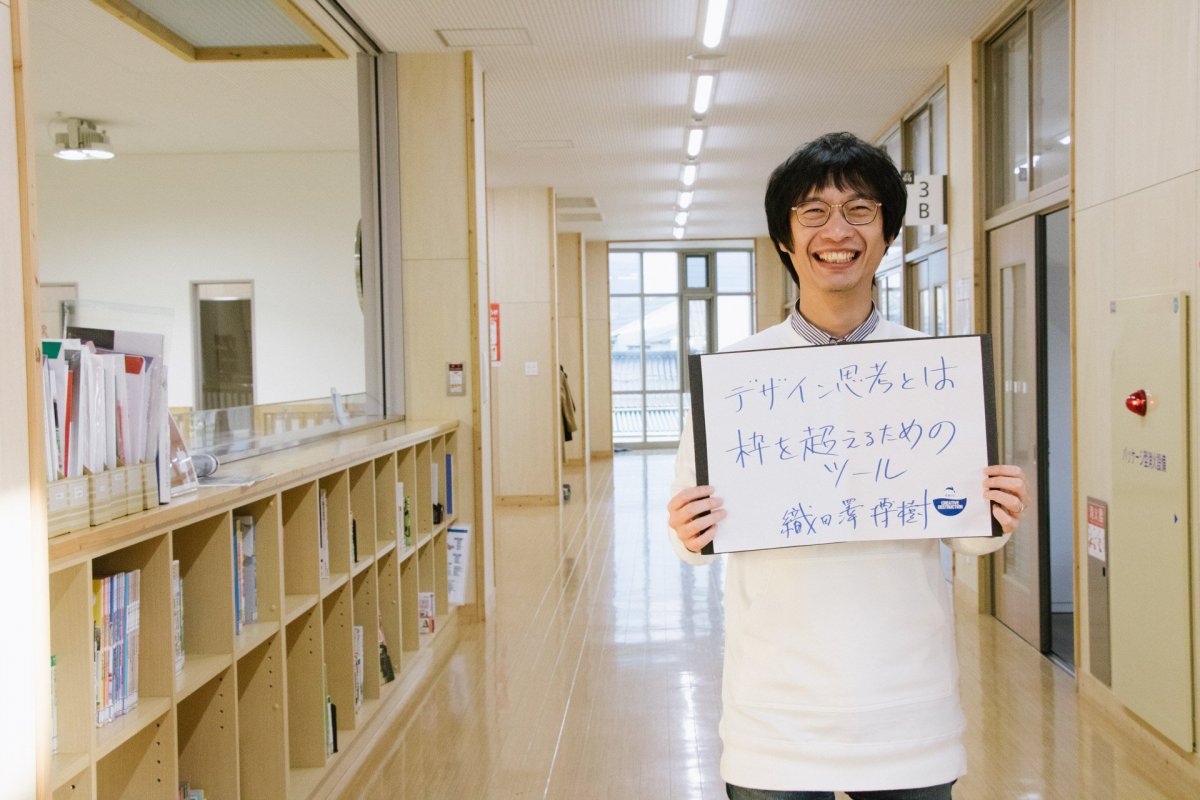 3
B
デザイン思考とは
枠を超えるための
ツール
織田澤 樹
CREATIVE
DESTRUCTION
パッケージ型消火設備